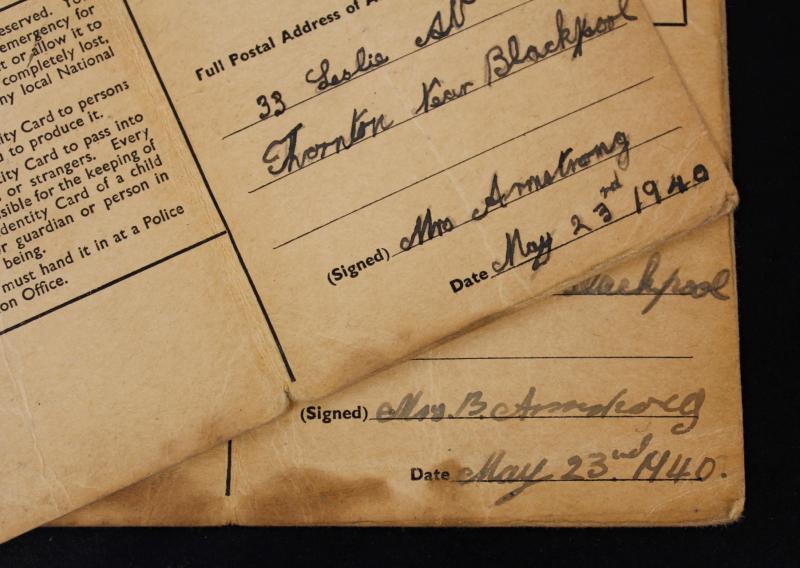 eserved. Yo
emergency for
t or allow it to
completely lost,
ny local National
ity Card to persons
d to produce it.
tity Card to pass into
or strangers. Every
sible for the keeping of
dentity Card of a child
r guardian or person in
being.
must hand it in at a Police
on Office.
Full Postal Address of A
33 Leslie Av
Thornton Near Blackpool
(Signed) Mrs Armstrong
Date May 23rd 1940
Blackpool
(Signed) Mrs. B. Armstrong
Date May 23.nd 1940.